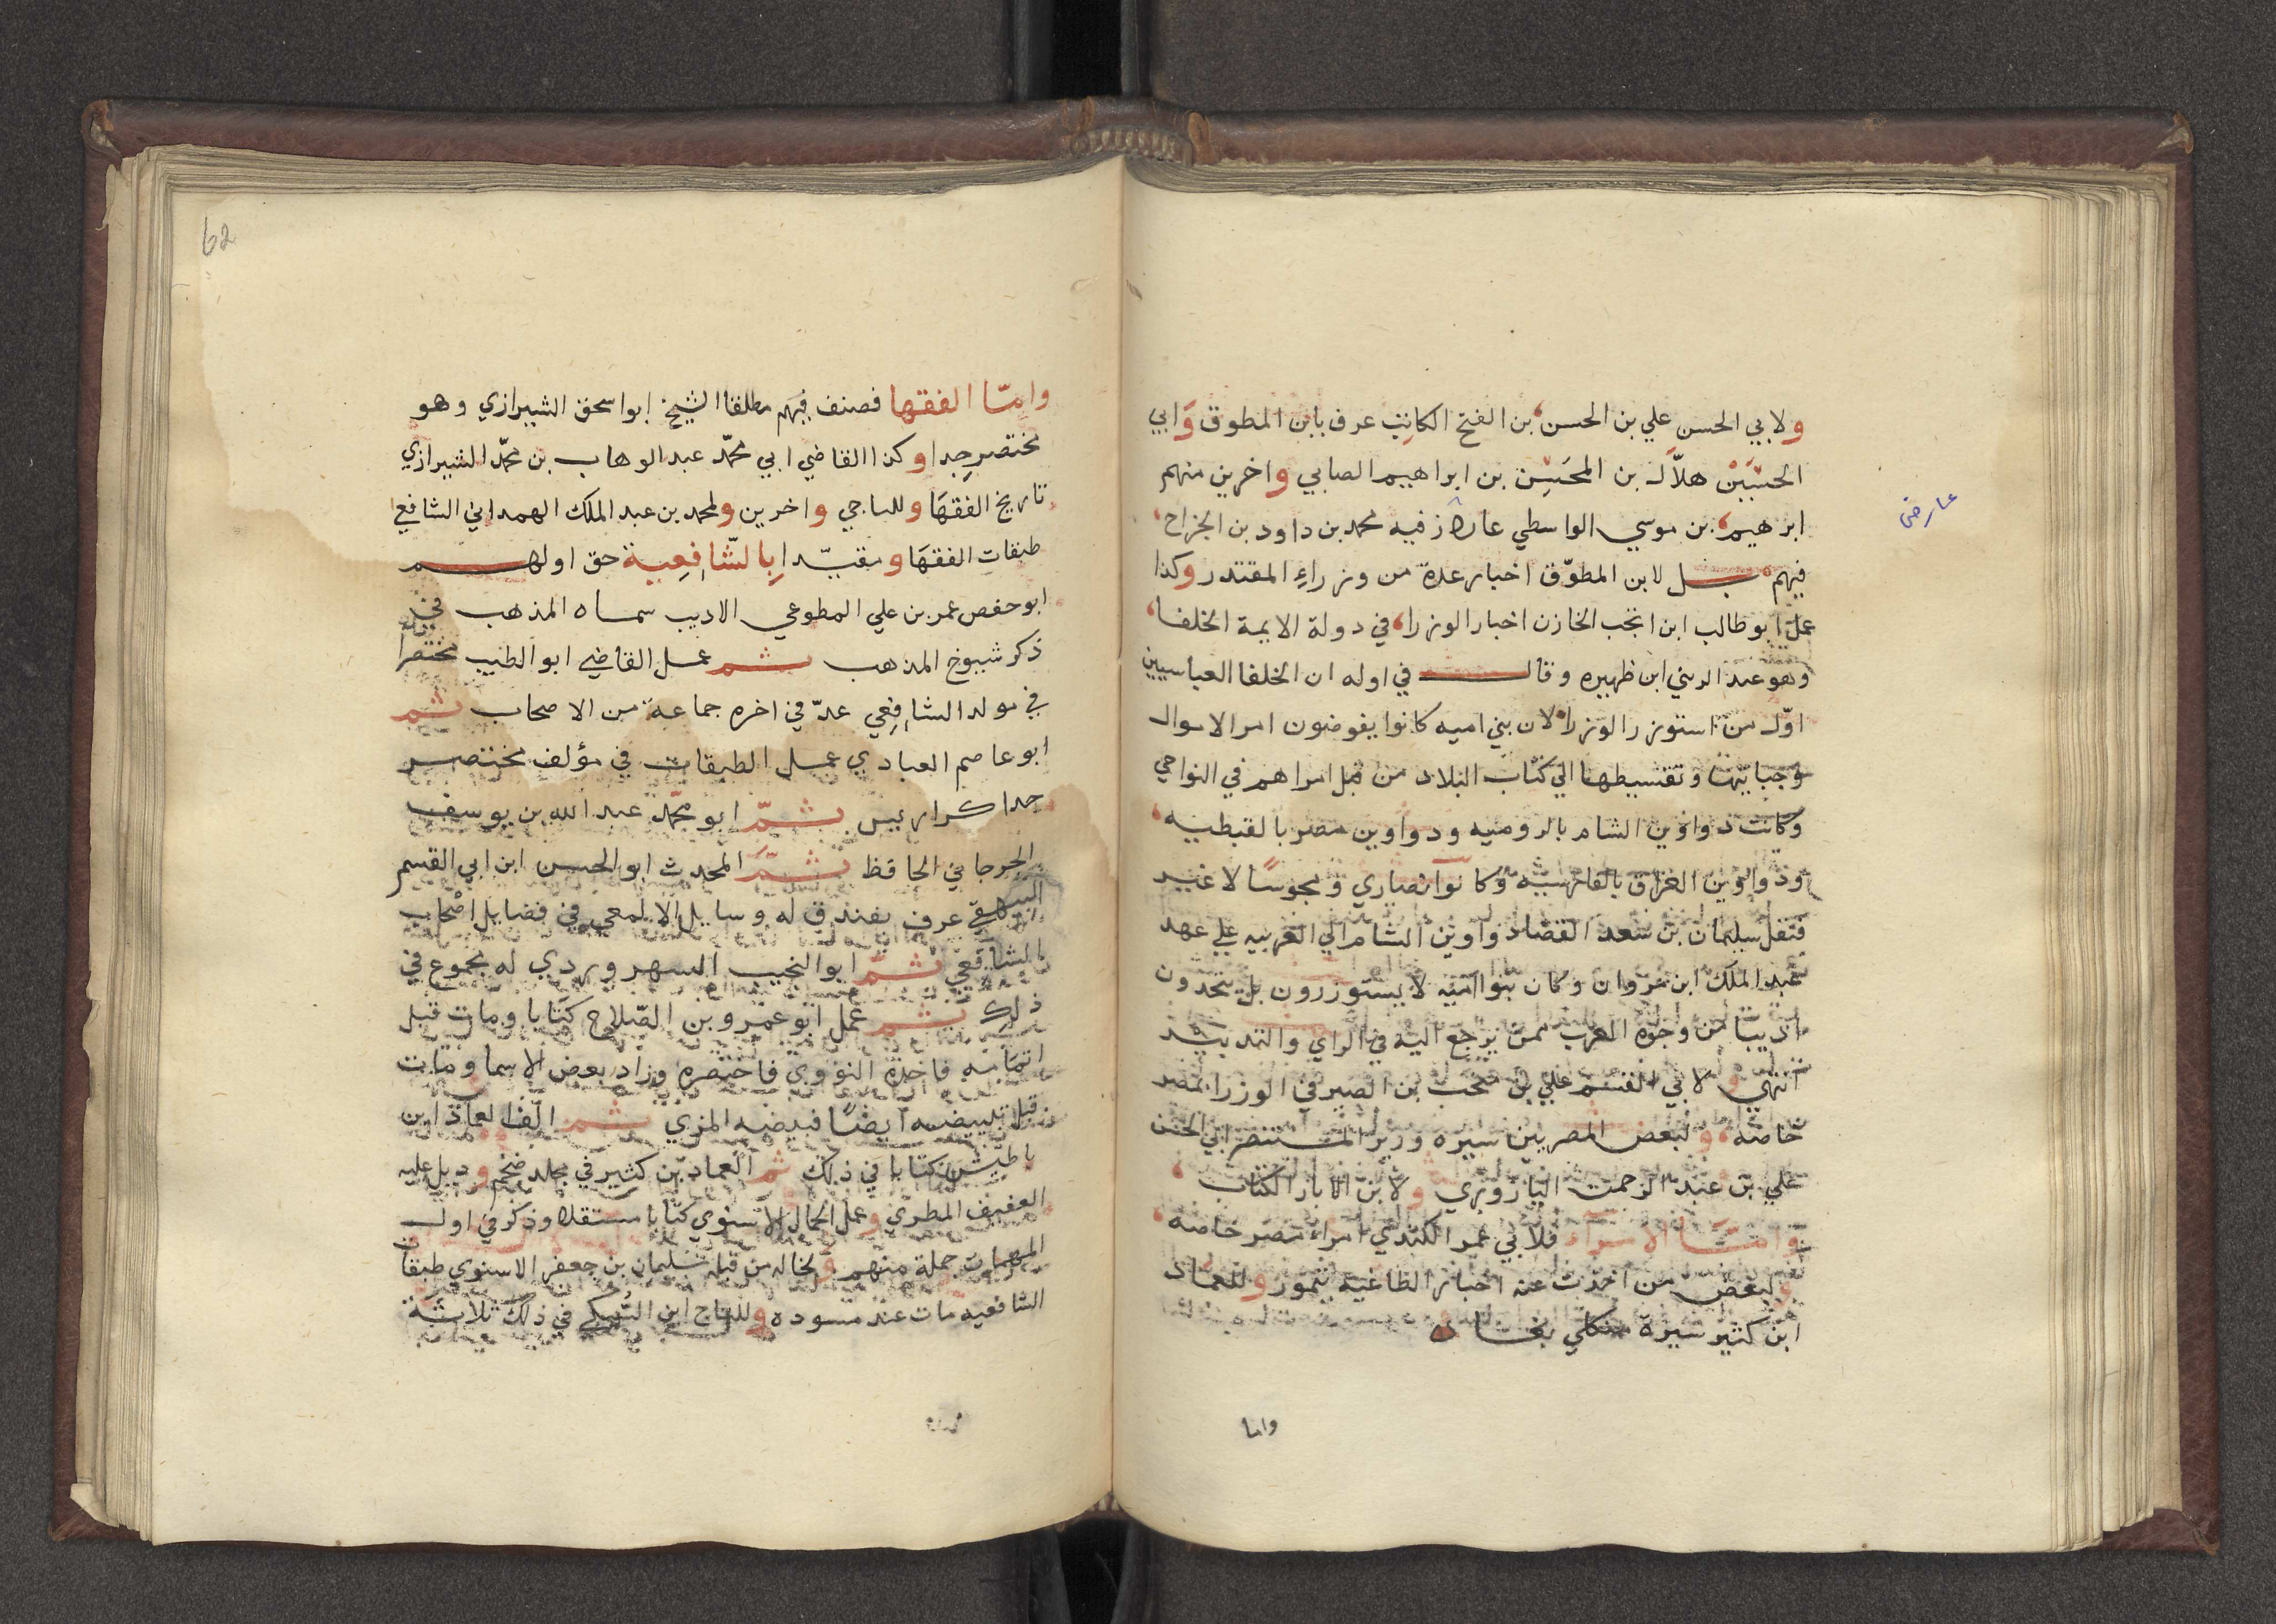 ولابي الحسن علي بن الحسن بن الفتح الكاتب عرف بابن المطوق وابي
الحسين هلال بن المحسن بن ابراهيم الصابي واخرين منهم
ابرهيم بن موسي الواسطي عارض فيه محمد بن داود بن الجراح
عارض
فيهم بل لابن المطوق اخبار عدة من وزراء المقتدر وكذا
عمل ابو طالب ابن انجب الخازن اخبار الوزرا في دولة الايمة الخلفا
وهو عند الرضي ابن ظهيره وقال في اوله ان الخلفا العباسيين
اول من استوزر الوزرا لان بني اميه كانوا يفوضون امر الاموال
وجبايتها وتقسيطها الي كتاب البلاد من قبل امراهم في النواحي
وكانت دواوين الشام بالروميه ودواوين مصر بالقبطيه
ودواوين العراق بالفارسيه وكانوا نصاري ومجوسا لا غير
فنقل سليمان بن سعد القضاء دواوين الشام الي العربيه علي عهد
عبد الملك ابن مروان وكان بنوا اميه لا يستوزرون بل يتخذون
اديبا من وجوه العرب ممن يرجع اليه في الراي والتدبير
انتهي ولابي القسم علي بن منجب بن الصيرفي الوزرا بمصر
خاصه ولبعض المصريين سيره وزير المستنصر ابي الحسن
علي بن عبد الرحمن اليازوري ولابن الابار الكتاب
واما الامراء فلابي عمر الكندي امراء مصر خاصه
ولبعض من اخذت عنه اخبار الطاغيه تيمور وللعماد
ابن كثير سيرة منكلي بغا
واما
62
واما الفقها فصنف فيهم مطلقا الشيخ ابو اسحق الشيرازي وهو
مختصر جدا وكذا القاضي ابي محمد عبد الوهاب بن محمد الشيرازي
تاريخ الفقها وللباجي واخرين ولمحمد بن عبد الملك الهمداني الشافعي
طبقات الفقها ومقيدا بالشافعية حق اولهم
ابو حفص عمر بن علي المطوعي الاديب سماه المذهب في
ذكر شيوخ المذهب ثم عمل القاضي ابو الطيب مختصرا
في مولد الشافعي عد في اخره جماعة من الاصحاب ثم
ابو عاصم العبادي عمل الطبقات في مؤلف مختصر
جدا كراريس ثم ابو محمد عبد الله بن يوسف
الجرجاني الحافظ ثم المحدث ابو الحسن ابن ابي القسم
البيهقي عرف بفندق له وسايل الالمعي في فضايل اصحاب
الشافعي ثم ابو النجيب السهروردي له مجموع في
ذلك ثم عمل ابو عمرو بن الصلاح كتابا ومات قبل
اتمامه فاخذه النووي فاختصره وزاد بعض الاسما ومات
قبل تبييضه ايضا فبيضه المزي ثم الف العماد ابن
باطيش كتابا في ذلك ثم العماد بن كثير في مجلد ضخم وذيل عليه
العفيف المطري وعمل الجمال الاسنوي كتابا مستقلا وذكر في اول
المهمات جملة منهم ولخاله من قبله سليمان بن جعفر الاسنوي طبقات
الشافعيه مات عنه مسوده وللتاج ابن السبكي في ذلك ثلاثة